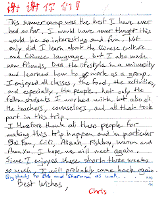 谢谢你们!
This summer camp was the best I have ever
had so far. I would have never thought this
would be so interesting and fun. Not
only did I learn about the Chinese culture
and Chinese language, but I also made
new friends, lived the lifestyle in a university
and learned how to work as a group.
I enjoyed all classes, the food, the activities
and especially the people. Not only the
fellow students I worked with, but also all
the teachers, counselors, and all that took
part in this trip.
I therefore thank all those people for
making this trip happen and in particular
Bai Fan, CEO, Mason, Ashley, Norm and
Mum. I hope we will meet again.
Since I enjoyed these short three weeks
so much I will probably come back again
Best Wishes,
Chris